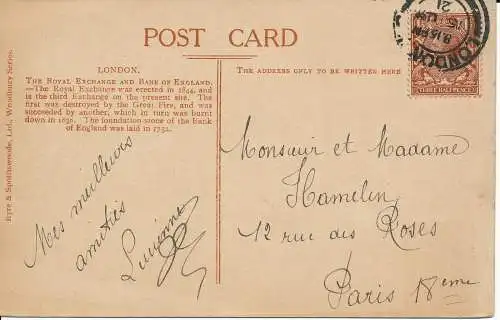 POST CARD
LONDON.
THE ROYAL EXCHANGE AND BANK OF ENGLAND.
—The Royal Exchange was erected in 1844, and
is the third Exchange on the present site. The
first was destroyed by the Great Fire, and was
succeeded by another, which in turn was burnt
down in 1838. The foundation stone of the Bank
of England was laid in 1732.
THE ADDRESS ONLY TO BE WRITTEN HERE
Eyre & Spottiswoode, Ltd., Woodbury Series.
Mes meilleurs
amitiés
Lucienne
Monsieur et Madame
Hamelin
12 rue des Roses
Paris 18eme
LONDON
THREE HALFPENCE